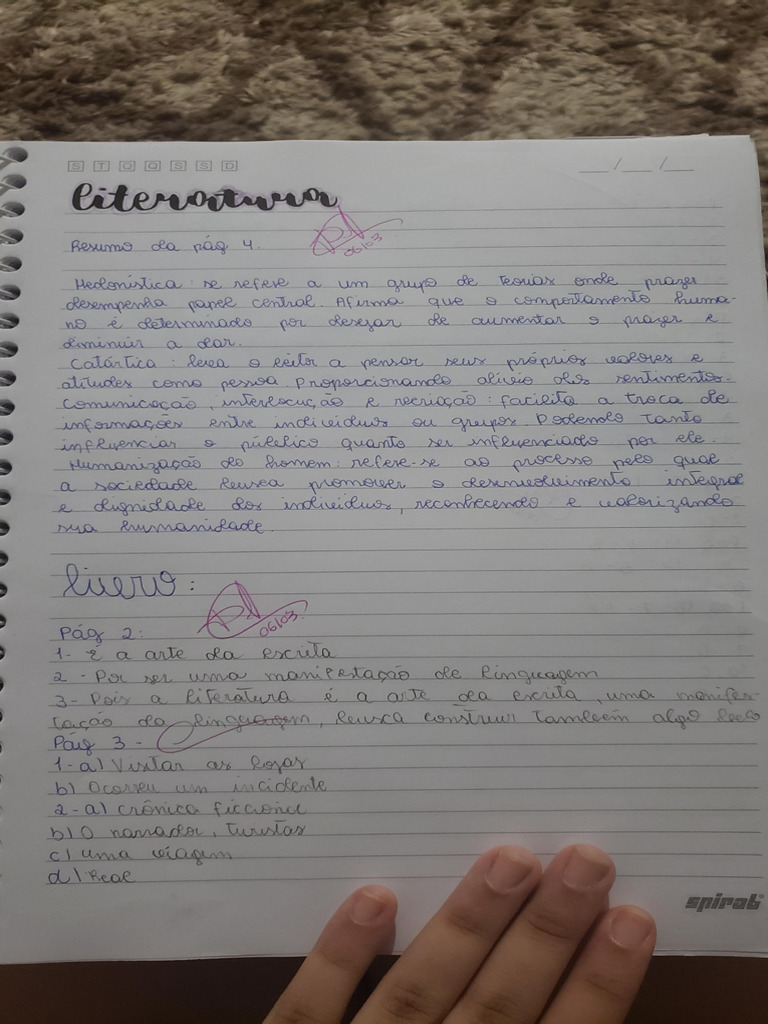 S T Q Q S S D
__/__/__
literatura
Resumo da pág 4.
06/03
Hedonística: se refere a um grupo de teorias onde prazer
desempenha papel central. Afirma que o comportamento huma-
no é determinado por desejar de aumentar o prazer e
diminuir a dor.
Catártica: leva o leitor a pensar seus próprios valores e
atitudes como pessoa. Proporcionando alívio dos sentimentos.
Comunicação, interlocução e recriação: facilita a troca de
informações entre indivíduos ou grupos. Podendo tanto
influenciar o público quanto ser influenciado por ele.
Humanização do homem: refere-se ao processo pelo qual
a sociedade busca promover o desenvolvimento integral
e dignidade dos indivíduos, reconhecendo e valorizando
sua humanidade.
livro:
06/03
Pág 2:
1- é a arte da escrita
2 - Por ser uma manifestação de linguagem
3- Pois a literatura é a arte da escrita, uma manifes-
tação da linguagem, busca construir também algo belo
Pág 3 -
1- a) Visitar as lojas
b) Ocorreu um incidente
2- a) crônica
b) O narrador, turistas
c) uma viagem
d) Real
spiral